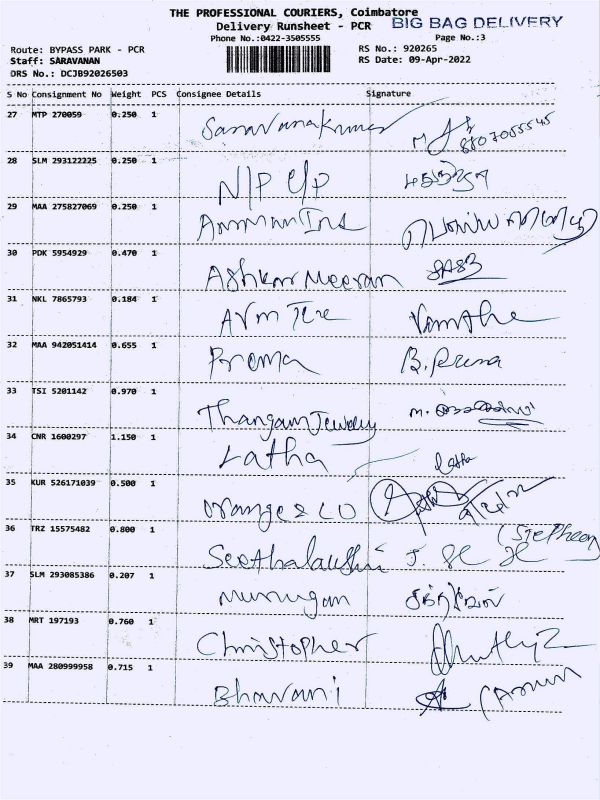 THE PROFESSIONAL COURIERS, Coimbatore
Delivery Runsheet - PCR BIG BAG DELIVERY
Phone No.:0422-3505555 Page No.:3
Route: BYPASS PARK - PCR RS No.: 920265
Staff: SARAVANAN RS Date: 09-Apr-2022
DRS No.: DCJB92026503
S No Consignment No Weight PCS Consignee Details Signature
27 MTP 270059 0.250 1 Saravanakumar
28 SLM 293122225 0.250 1 N/P C/P
29 MAA 275827069 0.250 1 Amman Ins
30 PDK 5954929 0.470 1 Ashkar Meeran
31 NKL 7865793 0.184 1 AVM
32 MAA 942051414 0.655 1 Prema B.
33 TSI 5201142 0.970 1 Thangam Jewelry M.
34 CNR 1600297 1.150 1 Latha Latha
35 KUR 526171039 0.500 1 Orange & CO
36 TRZ 15575482 0.800 1 J. (Stepheen
37 SLM 293085386 0.207 1 Murugan
38 MRT 197193 0.760 1 Christopher
39 MAA 280999958 0.715 1 Bhavani